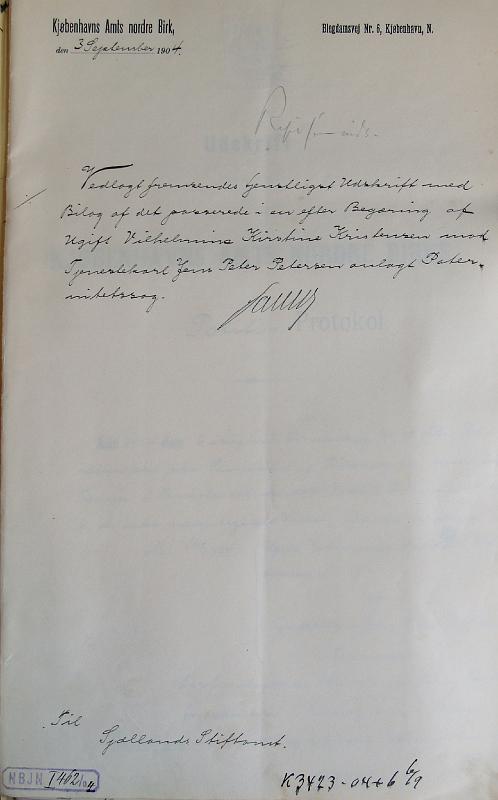 Kjøbenhavns Amts nordre Birk,
Blegdamsvej Nr. 6, Kjøbenhavn, N.
den 3 September 1904.
Vedlagt fremsendes tjenstligst Udskrift med
Bilag af det passerede i en efter Begæring af
Ugift Vilhelmine Kirstine Kristensen mod
Tjenestekarl Jens Peter Petersen anlagt Pater-
nitetssag.
Udskrift
Protokol
Til
Sjællands Stiftamt.
NBJN I 462/04
K3473-04+6 6/9